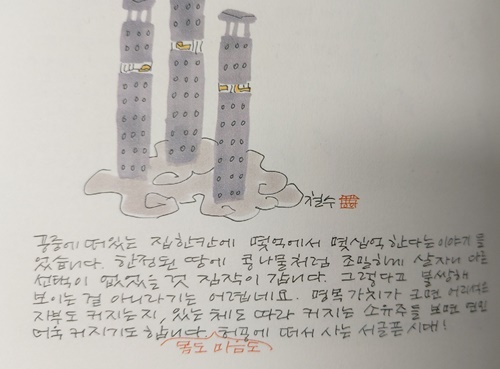 철수
공중에 떠있는 집한칸에 몇억에서 몇십억 한다는 이야기 들
었습니다. 한정된 땅에 콩나물처럼 조밀하게 살자니 다른
선택이 없었을 것 짐작이 갑니다. 그렇다고 불쌍해
보이는 걸 아니라기는 어렵네요. 명목가치가 크면 어리석은
자부도 커지는지, 있는 체도 따라 커지는 소유주들 보면 연민
더욱 커지기도 합니다. 허공에 떠서 사는 서글픈 시대!
몸도 마음도